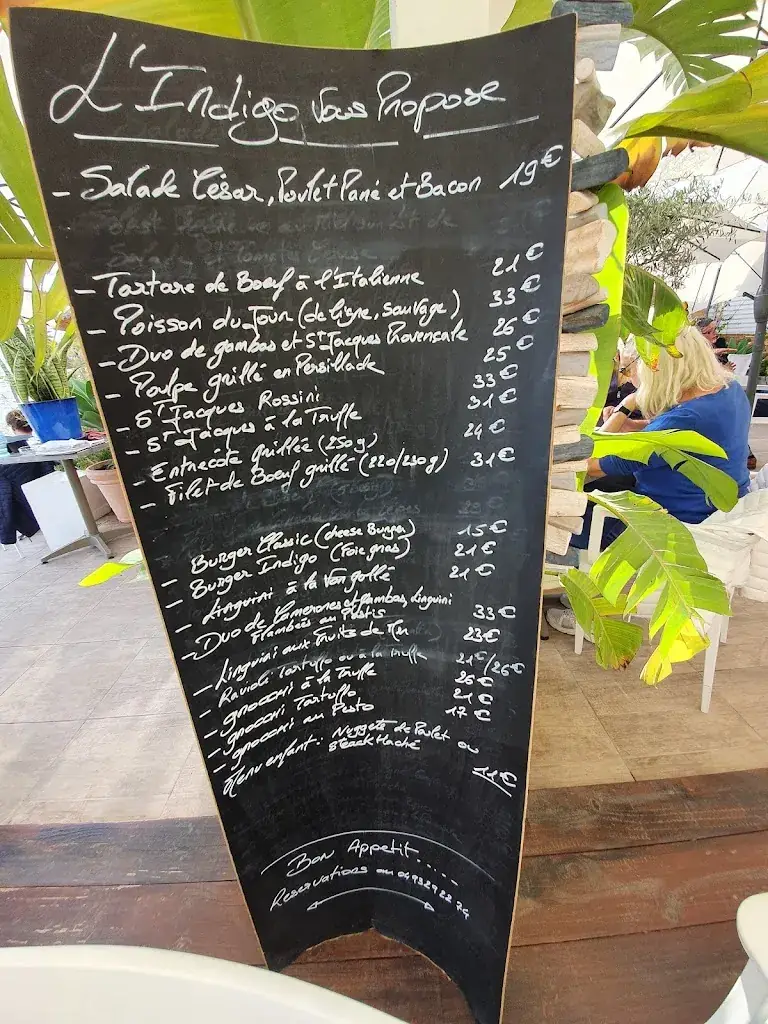 L'Indigo Vous Propose
- Salade César, Poulet Pané et Bacon 19€
- Tartare de Boeuf à l'Italienne 21€
- Poisson du Jour (de ligne, sauvage) 33€
- Duo de gambas et St Jacques Provençale 26€
- Poulpe grillé en Persillade 25€
- St Jacques Rossini 33€
- St Jacques à la Truffe 31€
- Entrecôte grillée (250g) 24€
- Filet de Boeuf grillé (220/230g) 31€
- Burger Classic (cheese Burger) 15€
- Burger Indigo (Foie gras) 21€
- Linguini à la Vongolle 21€
- Duo de Camerones et gambas, Linguini
Flambées au Pastis 33€
- Linguini aux Fruits de Mer 23€
- Ravioli Tartuffo ou à la Truffe 21€/26€
- gnocchi à la Truffe 26€
- gnocchi Tartuffo 21€
- gnocchi au Pesto 17€
Menu enfant: Nuggets de Poulet ou
Steack Haché 11€
Bon Appetit.....
Reservations au 0493292274